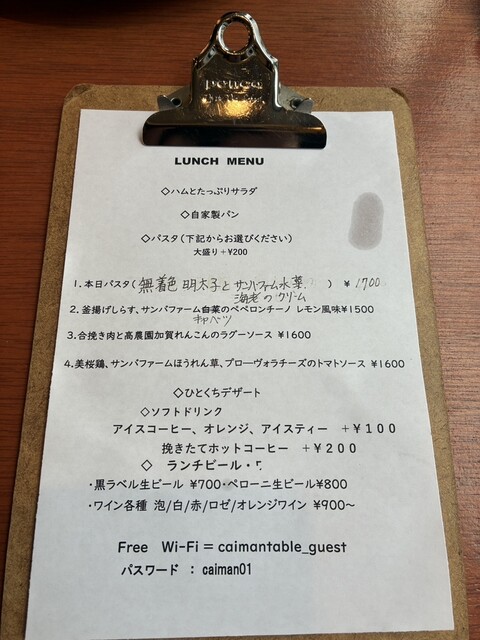 LUNCH MENU
◇ハムとたっぷりサラダ
◇自家製パン
◇パスタ(下記からお選びください)
大盛り+¥200
1.本日パスタ(無着色 明太子とサンバファーム水菜、) ¥1700
海老のクリーム
2.釜揚げしらす、サンバファーム白菜のペペロンチーノ レモン風味¥1500
キャベツ
3.合挽き肉と高農園加賀れんこんのラグーソース ¥1600
4.美桜鶏、サンバファームほうれん草、プローヴォラチーズのトマトソース ¥1600
◇ひとくちデザート
◇ソフトドリンク
アイスコーヒー、オレンジ、アイスティー +¥100
挽きたてホットコーヒー +¥200
◇ ランチビール・
・黒ラベル生ビール ¥700・ペローニ生ビール¥800
・ワイン各種 泡/白/赤/ロゼ/オレンジワイン ¥900~
Free Wi-Fi = caimantable_guest
パスワード : caiman01